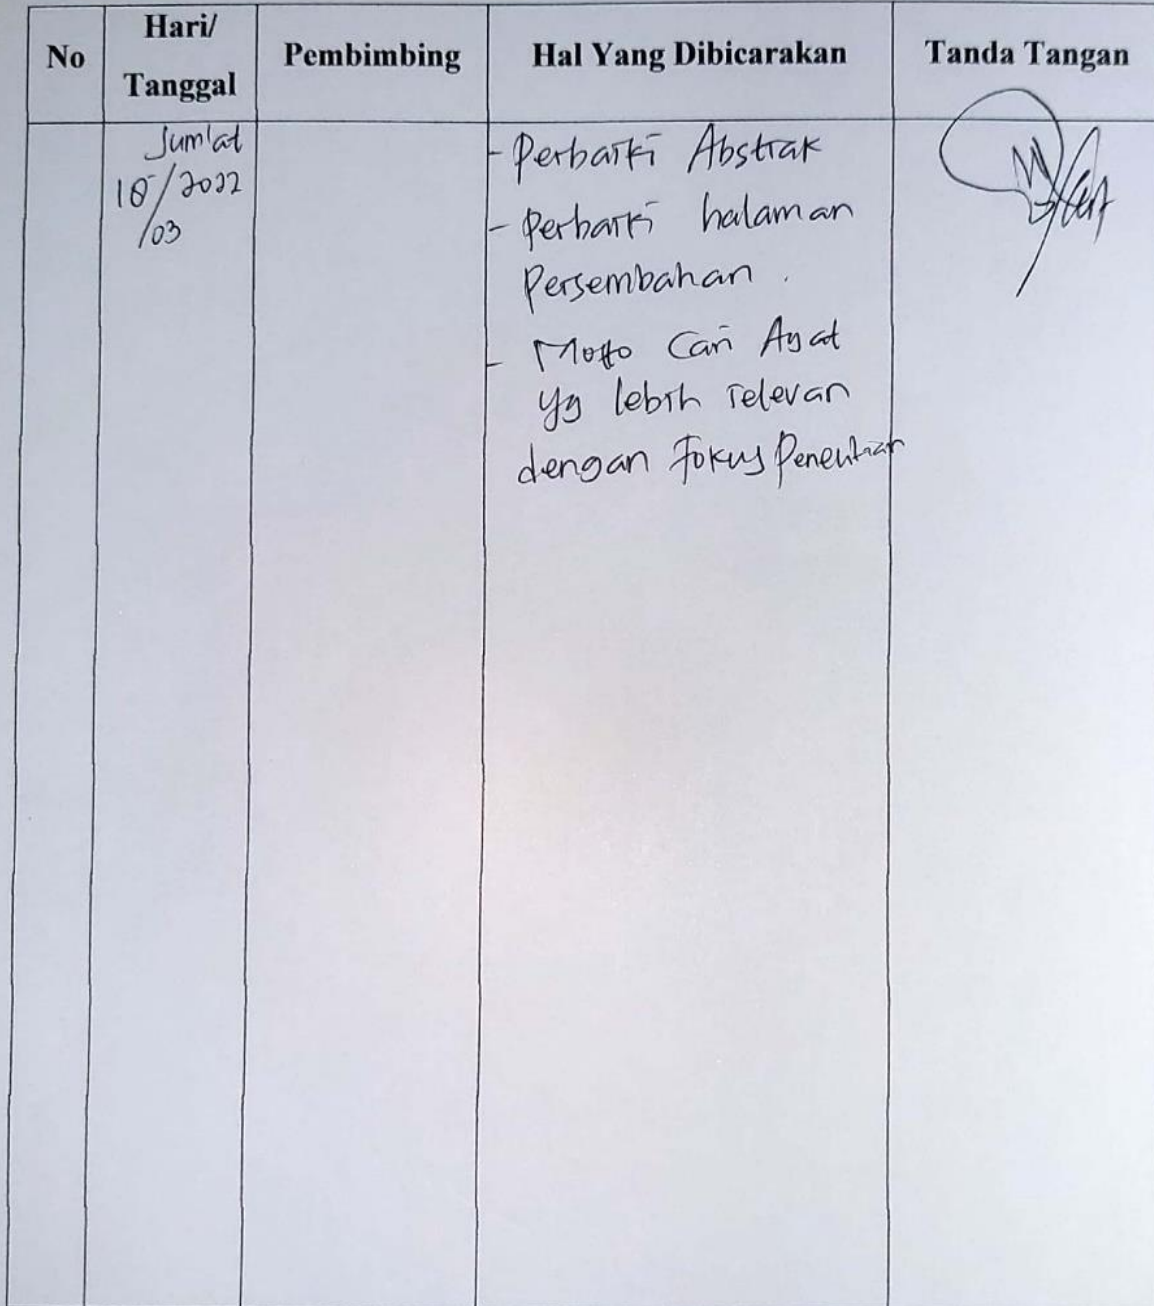 No
Hari/
Tanggal
Pembimbing
Hal Yang Dibicarakan
Tanda Tangan
Jum'at
/2022
/03
- Perbaiki Abstrak
- Perbaiki halaman
Persembahan.
- Motto Cari Ayat
yg lebih relevan
dengan Fokus Penelitian